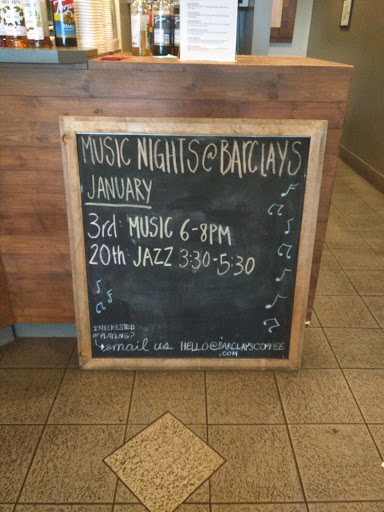 MUSIC NIGHTS @ BARCLAYS
JANUARY
3rd: MUSIC 6-8PM
20th: JAZZ 3:30-5:30
INTERESTED
IN PLAYING?
email us HELLO@BARCLAYSCOFFEE
.COM